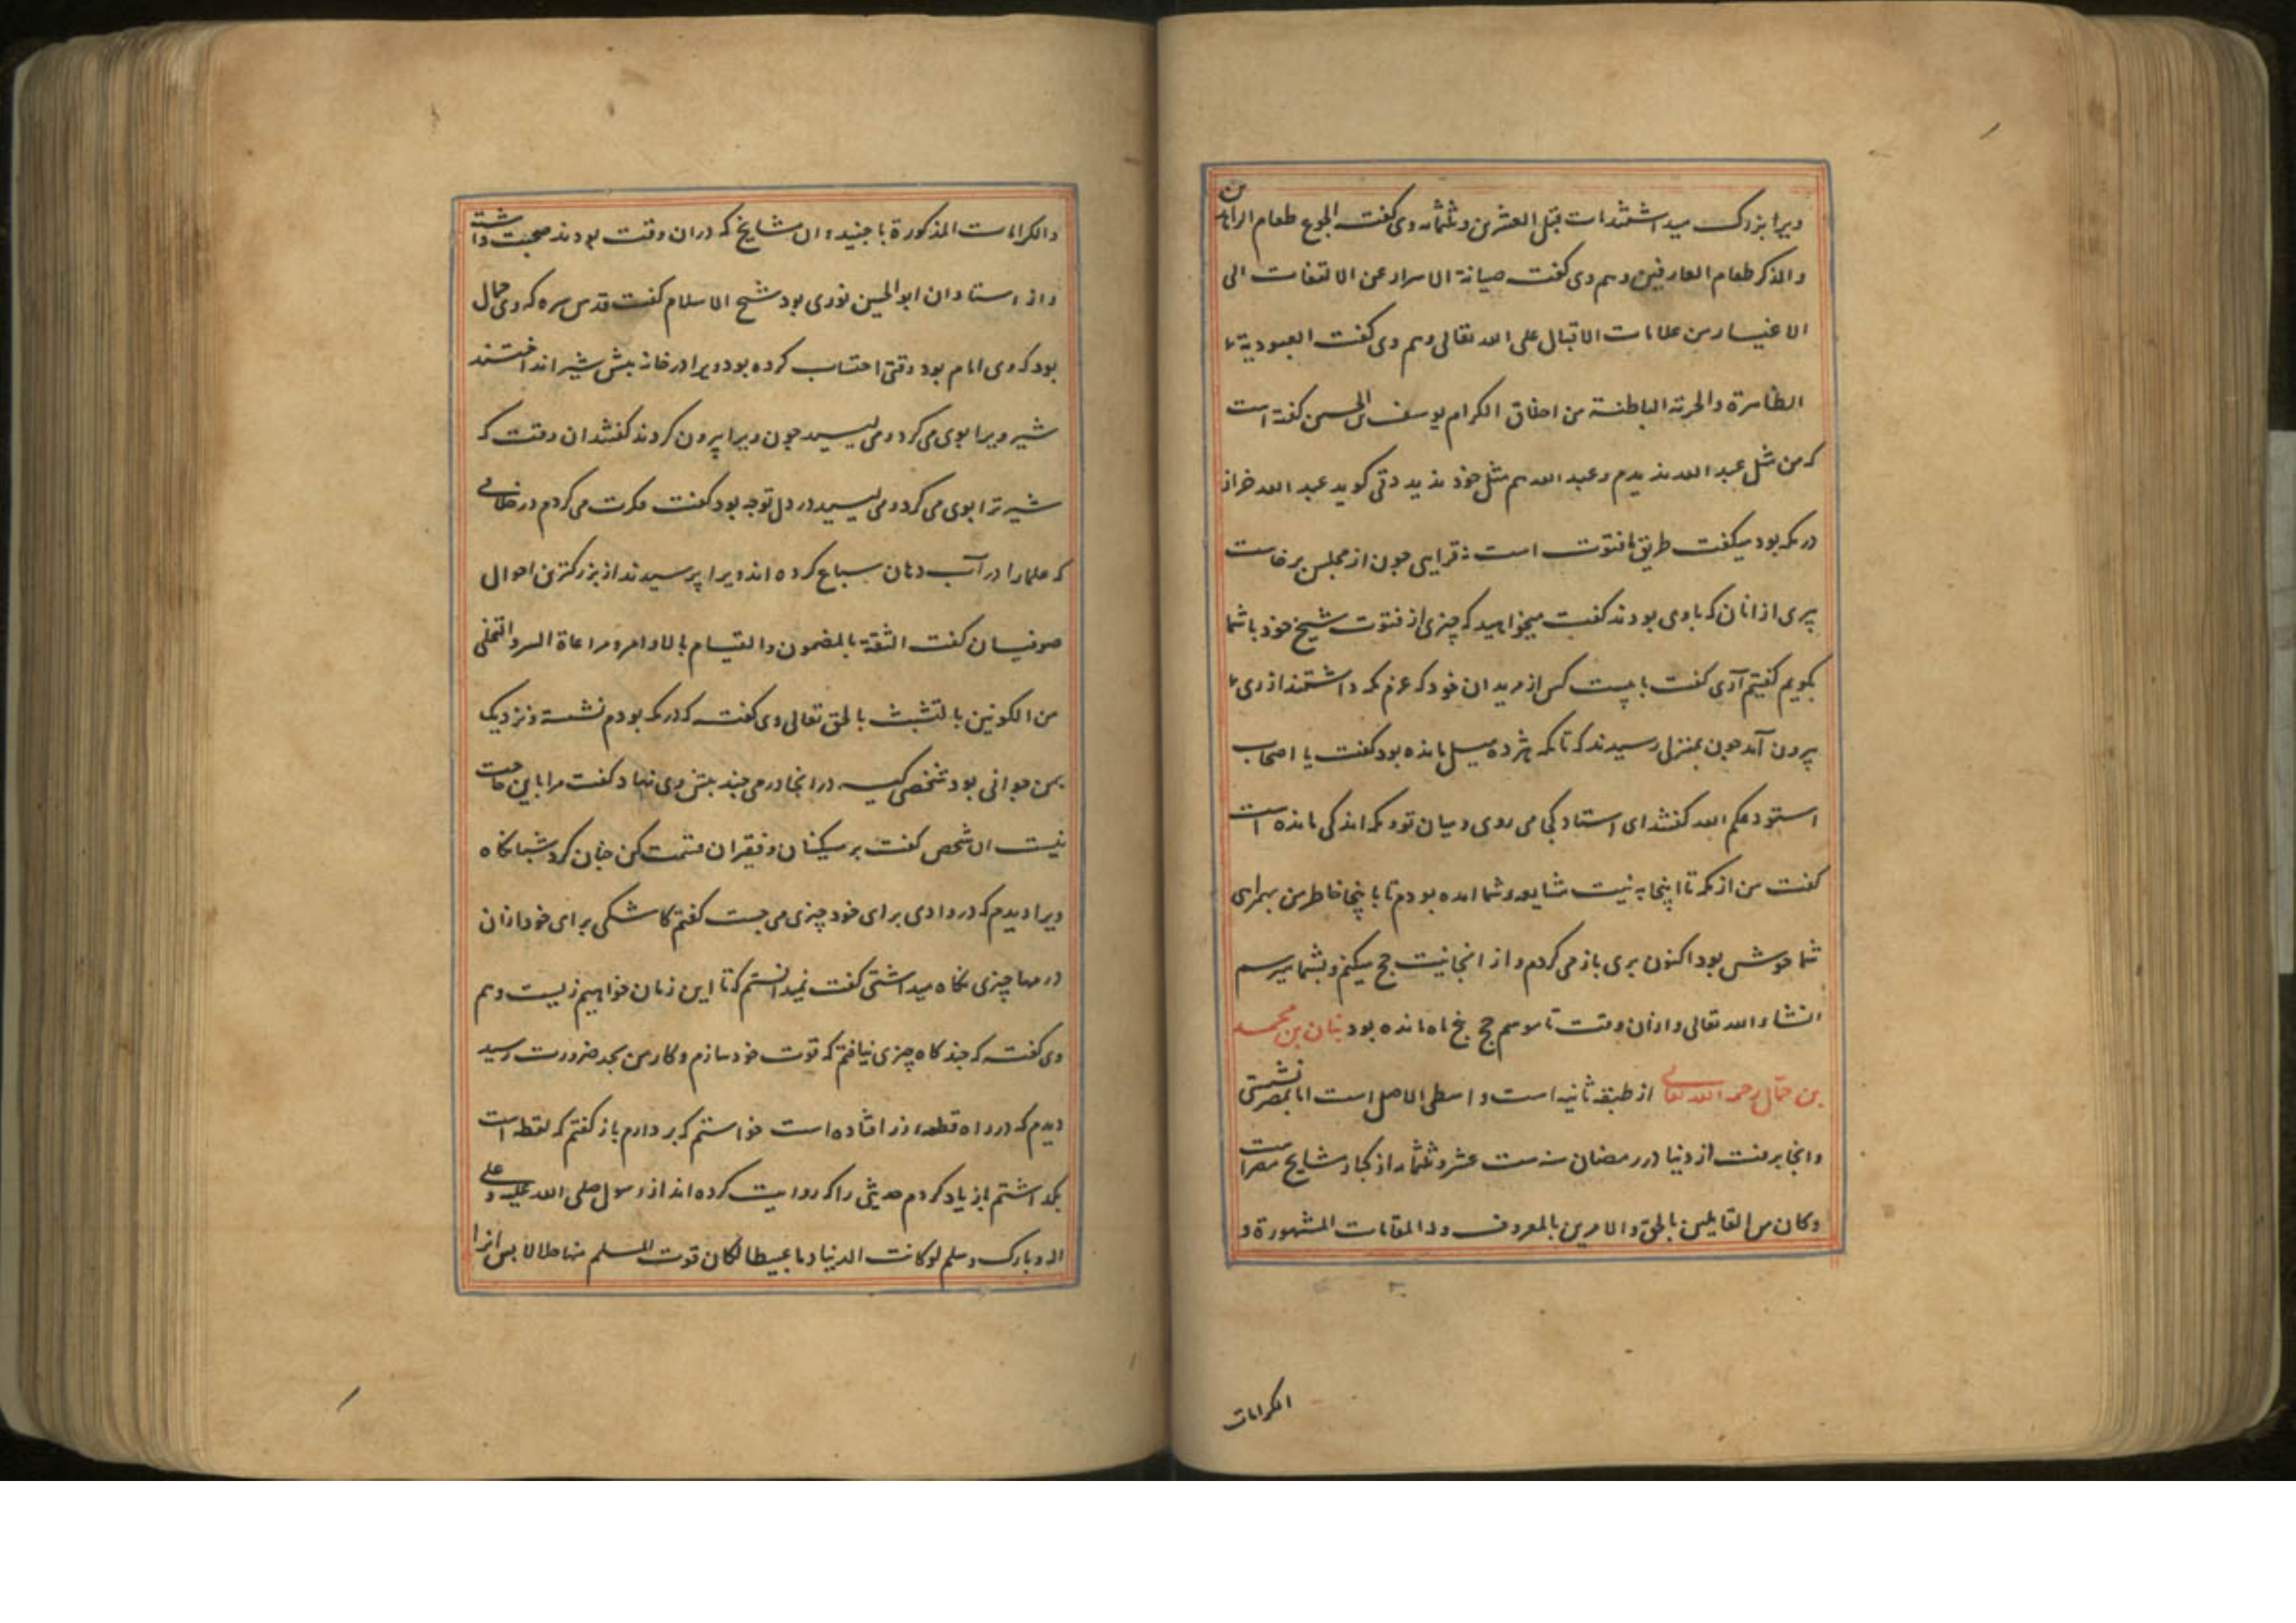 ویرا بزرک میداشتند مات قبل العشرین و ثلثمائه وی کفت الجوع طعام الزاهدین
والذکر طعام العارفین وهم وی کفت صیانة الاسرار عن الالتفات الی
الاغیار من علامات الاقبال علی الله تعالی وهم وی کفت العبودیة
الظاهرة والحریة الباطنة من اخلاق الکرام یوسف بن الحسین کفته است
که من مثل عبد الله ندیدم و عبد الله هم مثل خود ندید دقی کوید عبد الله خراز
در مکه بود میکفت طریق ما فتوت است نه قرایی جون از مجلس برخاست
پیری از انان که باوی بودند کفت میخواهید که چیزی از فتوت شیخ خود باشما
بکویم کفتیم آری کفت با بیست کس از مریدان خود که عزم مکه داشتند از ری
بیرون آمد جون بمنزلی رسیدند که تا مکه هژده میل مانده بود کفت یا اصحاب
استودعکم الله کفتند ای استاد کجا می روی و میان تو و مکه اندکی مانده است
کفت من از مکه تا اینجا به نیت مشایعه شما امده بودم تا باینجا خاطر من بهمراهی
شما خوش بود اکنون بری باز می کردم و از انجا نیت حج میکنم و بشما میرسم
انشاء الله تعالی و ازان وقت تا موسم حج پنج ماه مانده بود بنان بن محمد
بن حمال رحمه الله تعالی از طبقه ثانیه است واسطی الاصل است اما بمصر نشستی
وانجا برفت از دنیا در رمضان سنه ست عشر و ثلثمائه از کبار مشایخ مصر است
وکان من القایلین بالحق والامرین بالمعروف وله المقامات المشهورة و
الکرامات
والکرامات المذکورة با جنید و ان مشایخ که دران وقت بودند صحبت داشته
واز استادان ابو الحسین نوری بود شیخ الاسلام کفت قدس سره که وی حمال
بود که وی امام بود وقتی احتساب کرده بود ویرا در خانه پیش شیر انداختند
شیر ویرا بوی می کرد و می لیسید جون ویرا بیرون کردند کفتند ان وقت که
شیر ترا بوی می کرد و می لیسید در دل تو جه بود کفت فکرت می کردم در خلافی
که علما را در آب دهان سباع کرده اند ویرا پرسیدند از بزرکترین احوال
صوفیان کفت الثقة بالمضمون والقیام بالاوامر و مراعاة السر والتخلی
من الکونین بالتشبث بالحق تعالی وی کفت که در مکه بودم نشسته و نزدیک
بمن جوانی بود شخصی کیسه درانجا درمی جند پیش وی نهاد کفت مرا باین حاجت
نیست ان شخص کفت بر مسکینان و فقیران قسمت کن جنان کرد شبانکاه
ویرا دیدم که در وادی برای خود چیزی می جست کفتم کاشکی برای خود ازان
درمها چیزی نکاه میداشتی کفت نمیدانستم که تا این زمان خواهیم زیست وهم
وی کفت که جند کاه چیزی نیافتم که قوت خود سازم و کار من بحد ضرورت رسید
دیدم که در راه قطعه زر افتاده است خواستم که بردارم باز کفتم که لقطه است
بکذاشتم باز یاد کردم حدیثی را که روایت کرده اند از رسول صلی الله علیه و علی
اله و بارک وسلم لو کانت الدنیا دما عبیطا لکان قوت المسلم منها حلالا پس انرا